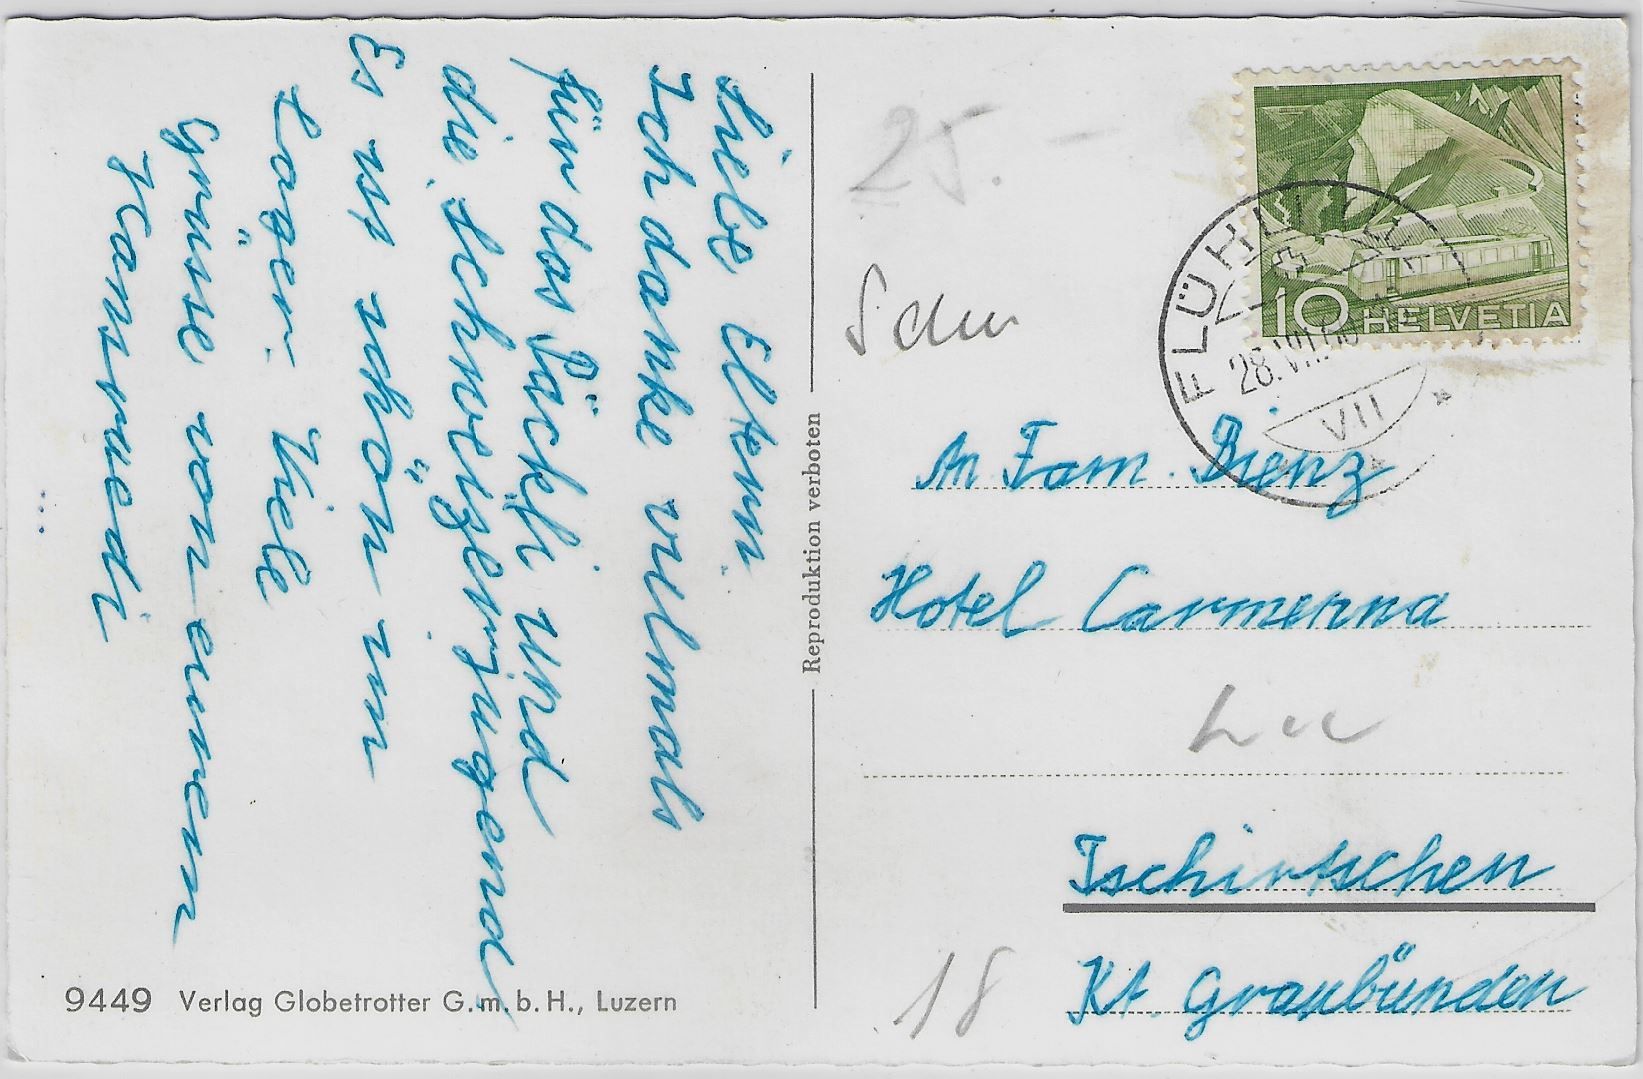 Liebe Eltern.
Ich danke vilmals
für das Päckli und
die Schweizerjugend
Es iss schön im
Lager. Viele
Grüsse von eurem
Hansruedi
9449 Verlag Globetrotter G.m.b.H., Luzern
Reproduktion verboten
25.-
10 HELVETIA
FLÜHLI
28.VII.
VII
An Fam. Bienz
Hotel Carmenna
Tschiertschen
Kt. Graubünden
18